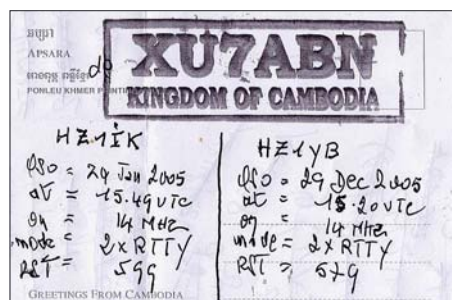 អប្សរា
APSARA
PONLEU KHMER PRINTI
de
XU7ABN
KINGDOM OF CAMBODIA
HZ1IK
QSO = 24 Jan 2005
at = 15.49 UTC
on = 14 MHz
mode = 2x RTTY
RST = 599
HZ1YB
QSO = 29 Dec 2005
at = 15.20 UTC
on = 14 MHz
mode = 2x RTTY
RST = 579
GREETINGS FROM CAMBODIA